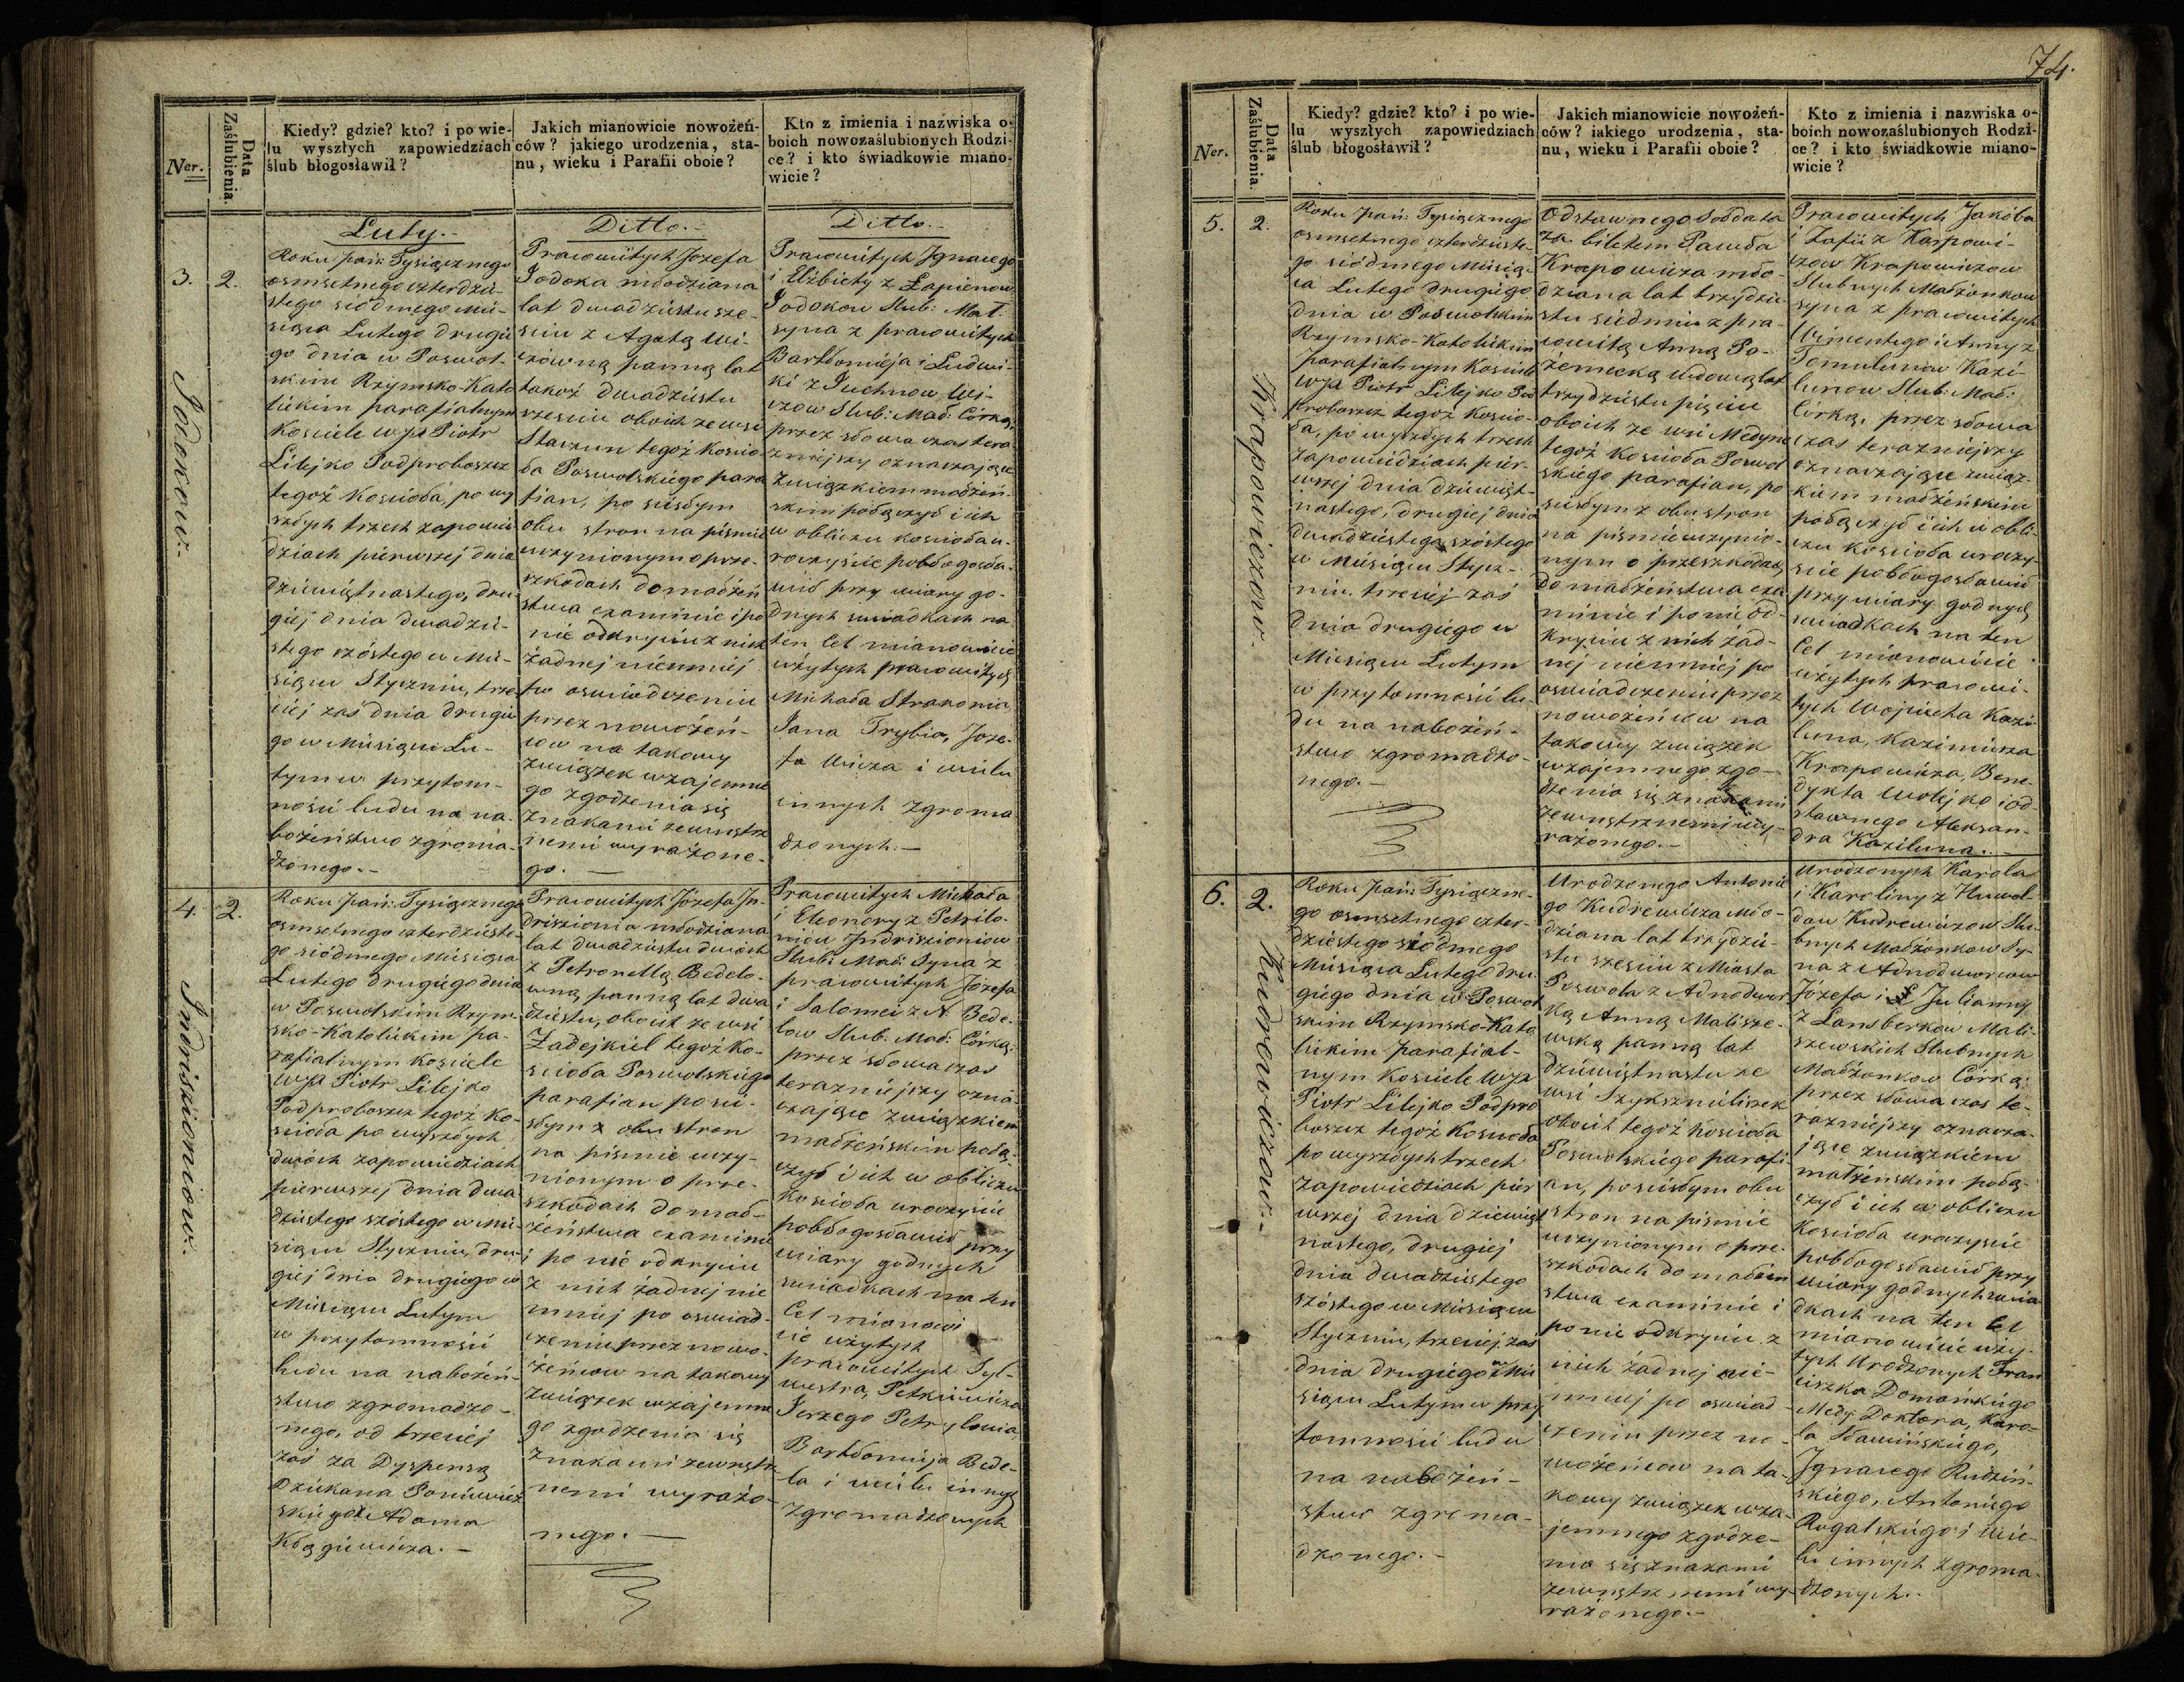 74.
Ner.
Data
Zaślubienia.
Kiedy? gdzie? kto? i po wie-
lu wyszłych zapowiedziach
ślub błogosławił?
Jakich mianowicie nowożeń-
ców? jakiego urodzenia, sta-
nu, wieku i Parafii oboie?
Kto z imienia i nazwiska o-
boich nowozaślubionych Rodzi-
ce? i kto świadkowie miano-
wicie?
Luty.-
Ditto.-
Ditto.-
3.
2.
Jodokow.-
Roku pań: Tysiącznego
osmsetnego czterdzie-
stego siódmego Mie-
siąca Lutego drugie
go dnia w Poswol-
skim Rzymsko-Kato
lickim parafialnym
Kościele WJX Piotr
Lilejko Podproboszcz
tegoż Kościoła, po wy
szłych trzech zapowie
dziach pierwszej dnia
dziewiętnastego, dru
giej dnia dwadzie-
stego szóstego w Mie-
siącu Styczniu, trze
ciej zaś dnia drugie
go w Miesiącu Lu-
tym w przytom-
ności ludu na na-
bożeństwo zgroma-
dzonego.-
Prawowitych Jozefa
Jodoka młodziana
lat dwadziestu sze-
sciu z Agatą Wi-
czówną panną lat
takoż dwadziestu
szesciu oboich ze wsi
Staczun tegoż Koscio
ła Poswolskiego para
fian, po scisłym
obu stron na pismie
uczynionym o prze-
szkodach do małżeń
stwa examinie i po
nie odkryciu z nich
żadnej niemniej
po oswiadczeniu
przez nowożeń-
cow na takowy
związek wzajemne
go zgodzenia się
znakami zewnętrz
nemi wyrażone-
go.-
Prawowitych Ignacego
i Elżbiety z Łapienow
Jodokow Slub: Mał:
syna z prawowitych
Bartłomieja i Ludwi-
ki z Juchnow Wi-
czow Slub: Mał: Córką,
przez słowa czas tera
zniejszy oznaczające
związkiem małżeń-
skim połączył i ich
w obliczu kościoła u-
roczyście pobłogosła-
wił przy wiary go-
dnych świadkach na
ten Cel mianowicie
użytych prawowitych
Michała Strakonia
Jana Trybia, Joze-
fa Wicza i wielu
innych zgroma
dzonych.-
4.
2.
Indriszioniow.-
Roku pań: Tysiącznego
osmsetnego czterdzieste-
go siódmego Miesiąca
Lutego drugiego dnia
w Poswolskim Rzym-
sko-Katolickim pa-
rafialnym Kościele
WJX Piotr Lilejko
Podproboszcz tegoż Ko-
ścioła po wyszłych
dwóch zapowiedziach
pierwszej dnia dwa
dziestego szóstego w Mie-
siącu Styczniu, dru-
giej dnia drugiego w
Miesiącu Lutym
w przytomności
ludu na nabożeń-
stwo zgromadzo-
nego, od trzeciej
zaś za Dyspensą
Dziekana Poniewież
skiego Adama
Kłągiewicza.-
Prawowitych Józefa In-
driszionia młodziana
lat dwadziestu dwóch
z Petronellą Bedelo-
wną, panną lat dwa
dziestu, oboich ze wsi
Zadejkiel tegoż Ko-
scioła Poswolskiego
parafian po sci-
słym z obu stron
na pismie uczy-
nionym o prze-
szkodach do mał-
żeństwa examinie
i po nie odkryciu
z nich żadnej nie
mniej po oswiad-
czeniu przez nowo-
żeńcow na takowy
związek wzajemne
go zgodzenia się
znakami zewnętrz
nemi wyrażo-
nego.-
Prawowitych Michała
i Eleonory z Petrilo-
niow Indriszioniow
Slub: Mał: Syna z
prawowitych Józefa
i Salomei z N. Bede-
low Slub: Mał: Córką;
przez słowa czas
terazniejszy ozna-
czające związkiem
małżeńskim połą-
czył i ich w obliczu
Kościoła uroczyście
pobłogosławił przy
wiary godnych
świadkach na ten
Cel mianowi
cie użytych
prawowitych Syl-
westra, Petkiewicza
Jerzego Petrylowia
Bartłomieja Bede-
la i wielu innych
zgromadzonych
Ner.
Data
Zaślubienia.
Kiedy? gdzie? kto? i po wie-
lu wyszłych zapowiedziach
ślub błogosławił?
Jakich mianowicie nowożeń-
ców? iakiego urodzenia, sta-
nu, wieku i Parafii oboie?
Kto z imienia i nazwiska o-
boich nowozaślubionych Rodzi-
ce? i kto świadkowie miano-
wicie?
5.
2.
Krapowiczow.-
Roku pań: Tysiącznego
osmsetnego czterdzieste-
go siódmego Miesią-
ca Lutego drugiego
dnia w Poswolskim
Rzymsko-Katolickim
parafialnym Kościele
WJX Piotr Lilejko Pod
proboszcz tegoż Kościo-
ła, po wyszłych trzech
zapowiedziach pier-
wszej dnia dziewięt-
nastego, drugiej dnia
dwadziestego szóstego
w Miesiącu Stycz-
niu, trzeciej zaś
dnia drugiego w
Miesiącu Lutym
w przytomności lu-
du na nabożeń-
stwo zgromadzo-
nego.-
Odstawnego Sołdata
za biletem Pawła
Krapowicza mło-
dziana lat trzydzie
stu siedmiu z pra-
wowitą Anną Po-
żemecką wdową lat
trzydziestu pięciu
oboich ze wsi Medyn
tegoż Kościoła Poswol
skiego parafian, po
scisłym z obu stron
na pismie uczynio-
nym o przeszkodach
do małżeństwa exa
minie i po nie od-
kryciu z nich żad-
nej niemniej po
oswiadczeniu przez
nowożeńcow na
takowy związek
wzajemnego zgo-
dzenia się znakami
zewnętrznemi wy-
rażonego.-
Prawowitych Jakóba
i Zofii z Karpowi-
czow Krapowiczow
Slubnych Małżonkow
syna z prawowitych
Wincentego i Anny z
Tomulunow Kazi-
lunow Slub: Mał:
Córką, przez słowa
czas terazniejszy
oznaczające związ-
kiem małżeńskim
połączył i ich w obli-
czu kościoła uroczy-
scie pobłogosławił
przy wiary godnych
swiadkach na ten
Cel mianowicie
użytych prawowi-
tych Wojciecha Kazi-
luna, Kazimierza
Krapowicza, Bene-
dykta Wolejko i od-
stawnego Aleksan-
dra Kaziluna.-
6.
2.
Kudrewiczow.-
Roku pań: Tysiączne-
go osmsetnego czter-
dziestego siódmego
Miesiąca Lutego dru
giego dnia w Poswol
skim Rzymsko-Kato
lickim parafial-
nym Kościele WJX
Piotr Lilejko Podpro
boszcz tegoż Kościoła
po wyszłych trzech
zapowiedziach pier
wszej dnia dziewięt
nastego, drugiej
dnia dwadziestego
szóstego w Miesiącu
Styczniu, trzeciej zaś
dnia drugiego w Mie
siącu Lutym w przy
tomności ludu
na nabożeń-
stwo zgroma-
dzonego.-
Urodzonego Antonie
go Kudrewicza mło-
dziana lat trzydzie-
stu szesciu z Miasta
Poswola z Adnodwor
ką Anną Malisze-
wską panną lat
dziewiętnastu ze
wsi Szykszneliszek
oboich tegoż Kościoła
Poswolskiego parafi
an, po scisłym obu
stron na pismie
uczynionym o prze-
szkodach do małżeń
stwa examinie i
po nie odkryciu z
nich żadnej nie-
mniej po oswiad-
czeniu przez no-
wożeńcow na ta-
kowy związek wza-
jemnego zgodze-
nia się znakami
zewnętrznemi wy-
rażonego.-
Urodzonych Karola
i Karoliny z Huwal-
dow Kudrewiczow Slu-
bnych Małżonkow Sy-
na z Adnodworcow
Józefa i Julianny
z Lansberkow Mali-
szewskich Slubnych
Małżonkow Córką;
przez słowa czas te-
razniejszy oznacza-
jące związkiem
małżeńskim połą-
czył i ich w obliczu
Kościoła uroczyscie
pobłogosławił przy
wiary godnych swia
dkach na ten Cel
mianowicie uży-
tych Urodzonych Fran
ciszka Domańskiego
Medy: Doktora, Karo-
la Sławińskiego,
Ignacego Rudziń-
skiego, Antoniego
Rogalskiego i wie-
lu innych zgroma-
dzonych.-